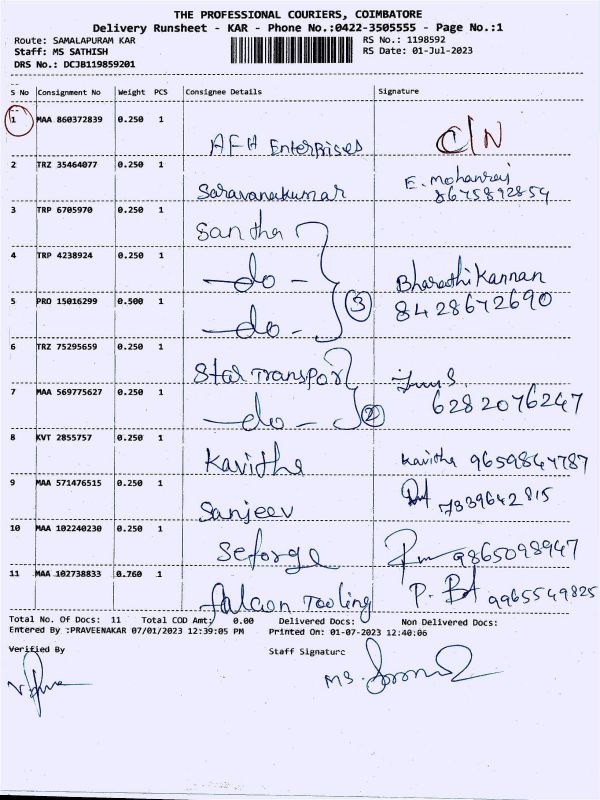 THE PROFESSIONAL COURIERS, COIMBATORE
Delivery Runsheet - KAR - Phone No.:0422-3505555 - Page No.:1
Route: SAMALAPURAM KAR RS No.: 1198592
Staff: MS SATHISH RS Date: 01-Jul-2023
DRS No.: DCJB119859201
S No Consignment No Weight PCS Consignee Details Signature
1 MAA 860372839 0.250 1 AFH Enterprises C/N
2 TRZ 35464077 0.250 1 Saravanakumar E. Mohanraj 8675892854
3 TRP 6705970 0.250 1 Santha
4 TRP 4238924 0.250 1 -do- Bharathi Kannan
5 PRO 15016299 0.500 1 -do- 3 8428672690
6 TRZ 75295659 0.250 1 Star Transport
7 MAA 569775627 0.250 1 -do- 2 6282076247
8 KVT 2855757 0.250 1 Kavitha Kavitha 9659847787
9 MAA 571476515 0.250 1 Sanjeev 7339642815
10 MAA 102240230 0.250 1 Seforge 9865098947
11 MAA 102738833 0.760 1 falcon Tooling 9965549825
Total No. Of Docs: 11 Total COD Amt: 0.00 Delivered Docs: Non Delivered Docs:
Entered By :PRAVEENAKAR 07/01/2023 12:39:05 PM Printed On: 01-07-2023 12:40:06
Verified By Staff Signature
MS.